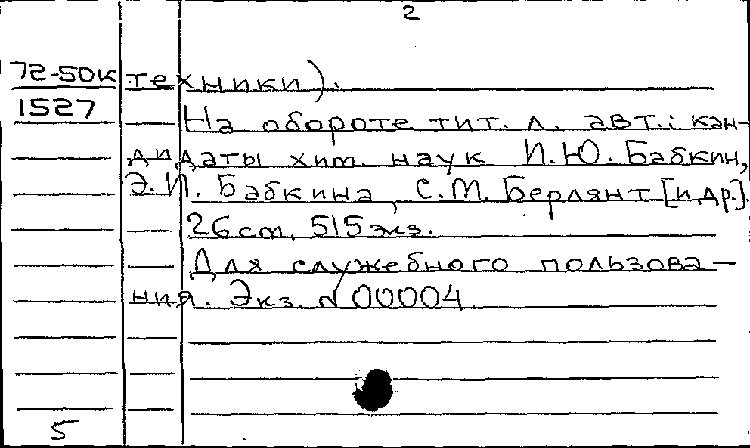 2
72-50к техники).
1527 На обороте тит. л. авт.: кан-
дидаты хим. наук И.Ю. Бабкин,
Э.И. Бабкина, С.М. Берлянт [и др.].
26 см. 515 экз.
Для служебного пользова-
ния. Экз. N 00004.
5